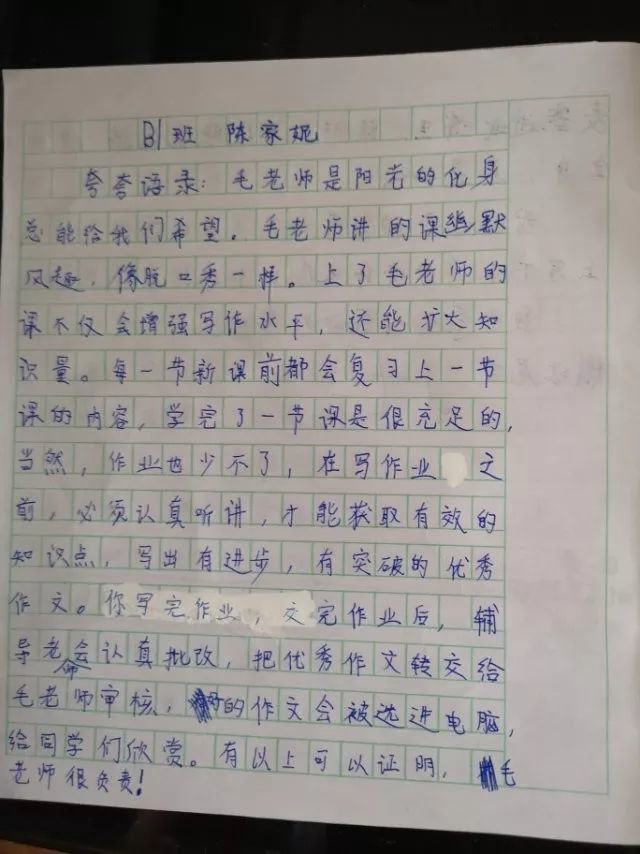 B1班 陈家妮
夸夸语录：毛老师是阳光的化身
总能给我们希望。毛老师讲的课幽默
风趣，像脱口秀一样。上了毛老师的
课不仅会增强写作水平，还能扩大知
识量。每一节新课前都会复习上一节
课的内容，学完了一节课是很充足的，
当然，作业也少不了，在写作业之
前，必须认真听讲，才能获取有效的
知识点，写出有进步，有突破的优秀
作文。你写完作业，交完作业后，辅
导老师会认真批改，把优秀作文转交给
毛老师审核，好的作文会被选进电脑，
给同学们欣赏。有以上可以证明，毛
老师很负责！